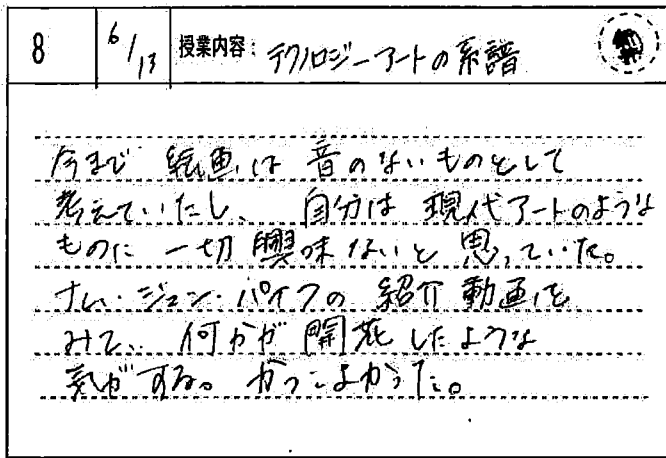 8 6/13 授業内容: テクノロジーアートの系譜
今まで 絵画は 音のないものとして
考えていたし、 自分は 現代アートのような
ものに 一切 興味ないと 思っていた。
ナム・ジュン・パイクの 紹介 動画を
みて、 何かが 開花したような
気がする。 かっこよかった。